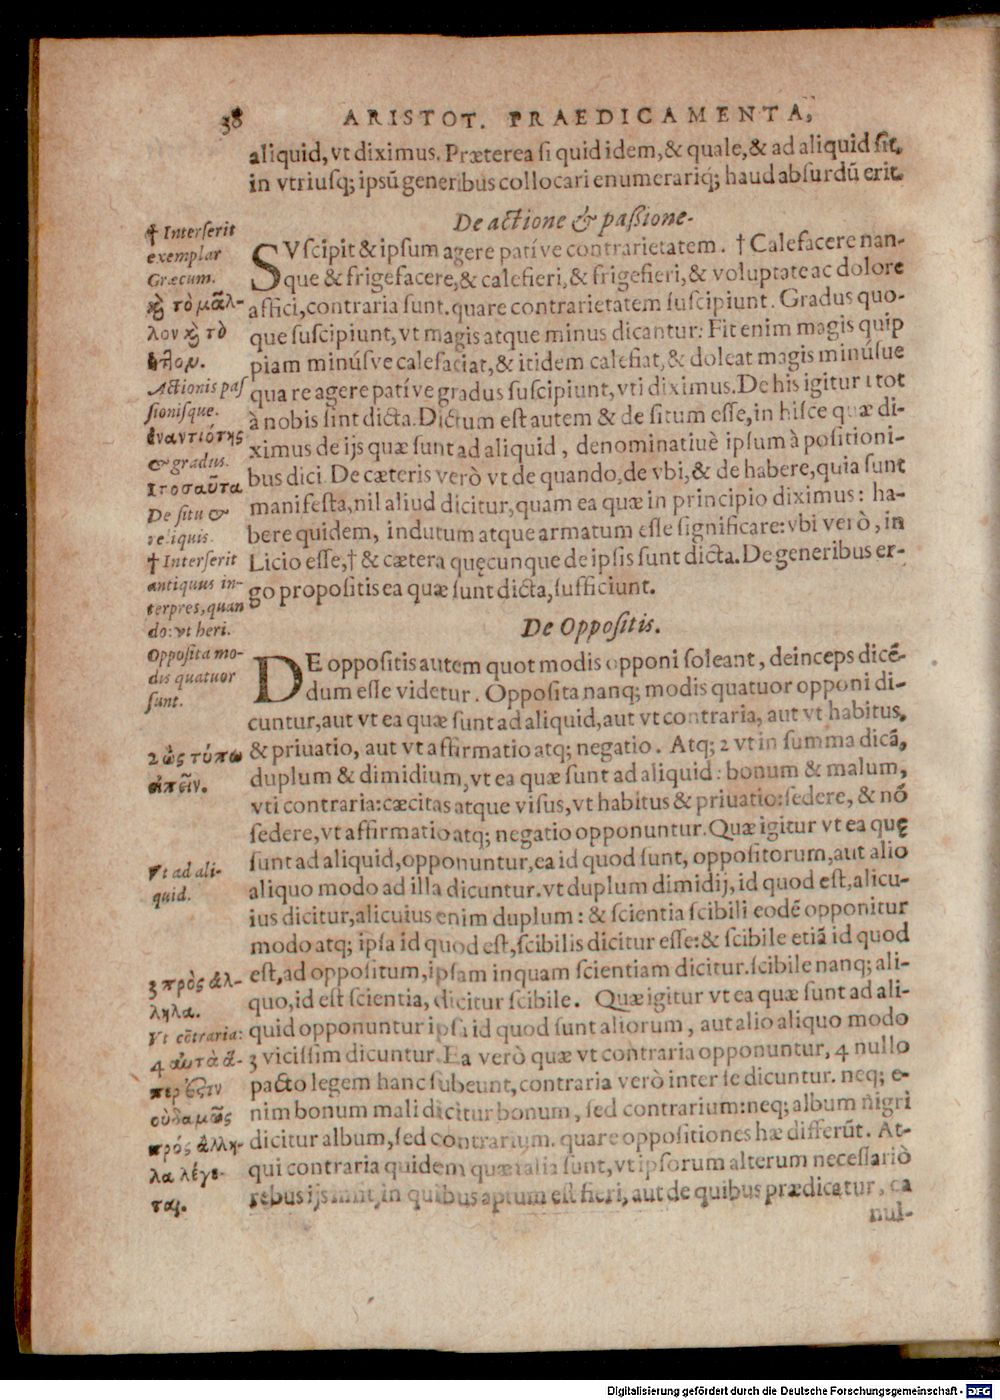 38 ARISTOT. PRAEDICAMENTA,
aliquid, vt diximus. Præterea si quid idem, & quale, & ad aliquid sit,
in vtriusq; ipsū generibus collocari enumerariq́; haud absurdū erit.
De actione & passione.
SVscipit & ipsum agere patíve contrarietatem. † Calefacere nan-
que & frigefacere, & calefieri, & frigefieri, & voluptate ac dolore
affici, contraria sunt. quare contrarietatem suscipiunt. Gradus quo-
que suscipiunt, vt magis atque minus dicantur: Fit enim magis quip
piam minúsve calefaciat, & itidem calefiat, & doleat magis minúsue
qua re agere patíve gradus suscipiunt, vti diximus. De his igitur 1 tot
à nobis sint dicta. Dictum est autem & de situm esse, in hisce quæ di-
ximus de ijs quæ sunt ad aliquid, denominatiuè ipsum à positioni-
bus dici. De cæteris verò vt de quando, de vbi, & de habere, quia sunt
manifesta, nil aliud dicitur, quam ea quæ in principio diximus: ha-
bere quidem, indutum atque armatum esse significare: vbi verò, in
Licio esse, † & cætera quęcunque de ipsis sunt dicta. De generibus er-
go propositis ea quæ sunt dicta, sufficiunt.
De Oppositis.
DE oppositis autem quot modis opponi soleant, deinceps dicē-
dum esse videtur. Opposita nanq; modis quatuor opponi di-
cuntur, aut vt ea quæ sunt ad aliquid, aut vt contraria, aut vt habitus,
& priuatio, aut vt affirmatio atq; negatio. Atq; 2 vt in summa dicā,
duplum & dimidium, vt ea quæ sunt ad aliquid: bonum & malum,
vti contraria: cæcitas atque visus, vt habitus & priuatio: sedere, & nō
sedere, vt affirmatio atq; negatio opponuntur. Quæ igitur vt ea quę
sunt ad aliquid, opponuntur, ea id quod sunt, oppositorum, aut alio
aliquo modo ad illa dicuntur. vt duplum dimidij, id quod est, alicu-
ius dicitur, alicuius enim duplum: & scientia scibili eodē opponitur
modo atq; ipsa id quod est, scibilis dicitur esse: & scibile etiā id quod
est, ad oppositum, ipsam inquam scientiam dicitur. scibile nanq; ali-
quo, id est scientia, dicitur scibile. Quæ igitur vt ea quæ sunt ad ali-
quid opponuntur ipsa id quod sunt aliorum, aut alio aliquo modo
3 vicissim dicuntur. Ea verò quæ vt contraria opponuntur, 4 nullo
pacto legem hanc subeunt, contraria verò inter se dicuntur. neq; e-
nim bonum mali dicitur bonum, sed contrarium: neq; album nigri
dicitur album, sed contrarium. quare oppositiones hæ differūt. At-
qui contraria quidem quæ talia sunt, vt ipsorum alterum necessariò
rebus ijs insit, in quibus aptum est fieri, aut de quibus prædicatur, ea
nul-
† Interserit
exemplar
Græcum.
καὶ τὸ μᾶλ-
λον καὶ τὸ
ἧττον.
Actionis pas
sionisque.
ἐναντιότης
& gradus.
1 τοσαῦτα
De situ &
reliquis.
† Interserit
antiquus in-
terpres, quan
do: vt heri.
Opposita mo-
dis quatuor
sunt.
2 ὡς τύπῳ
εἰπεῖν.
Vt ad ali-
quid.
3 πρὸς ἄλ-
ληλα.
Vt cōtraria:
4 αὐτὰ ἅ-
περ ἐστὶν
οὐδαμῶς
πρὸς ἄλλη-
λα λέγε-
ται.
Digitalisierung gefördert durch die Deutsche Forschungsgemeinschaft - DFG